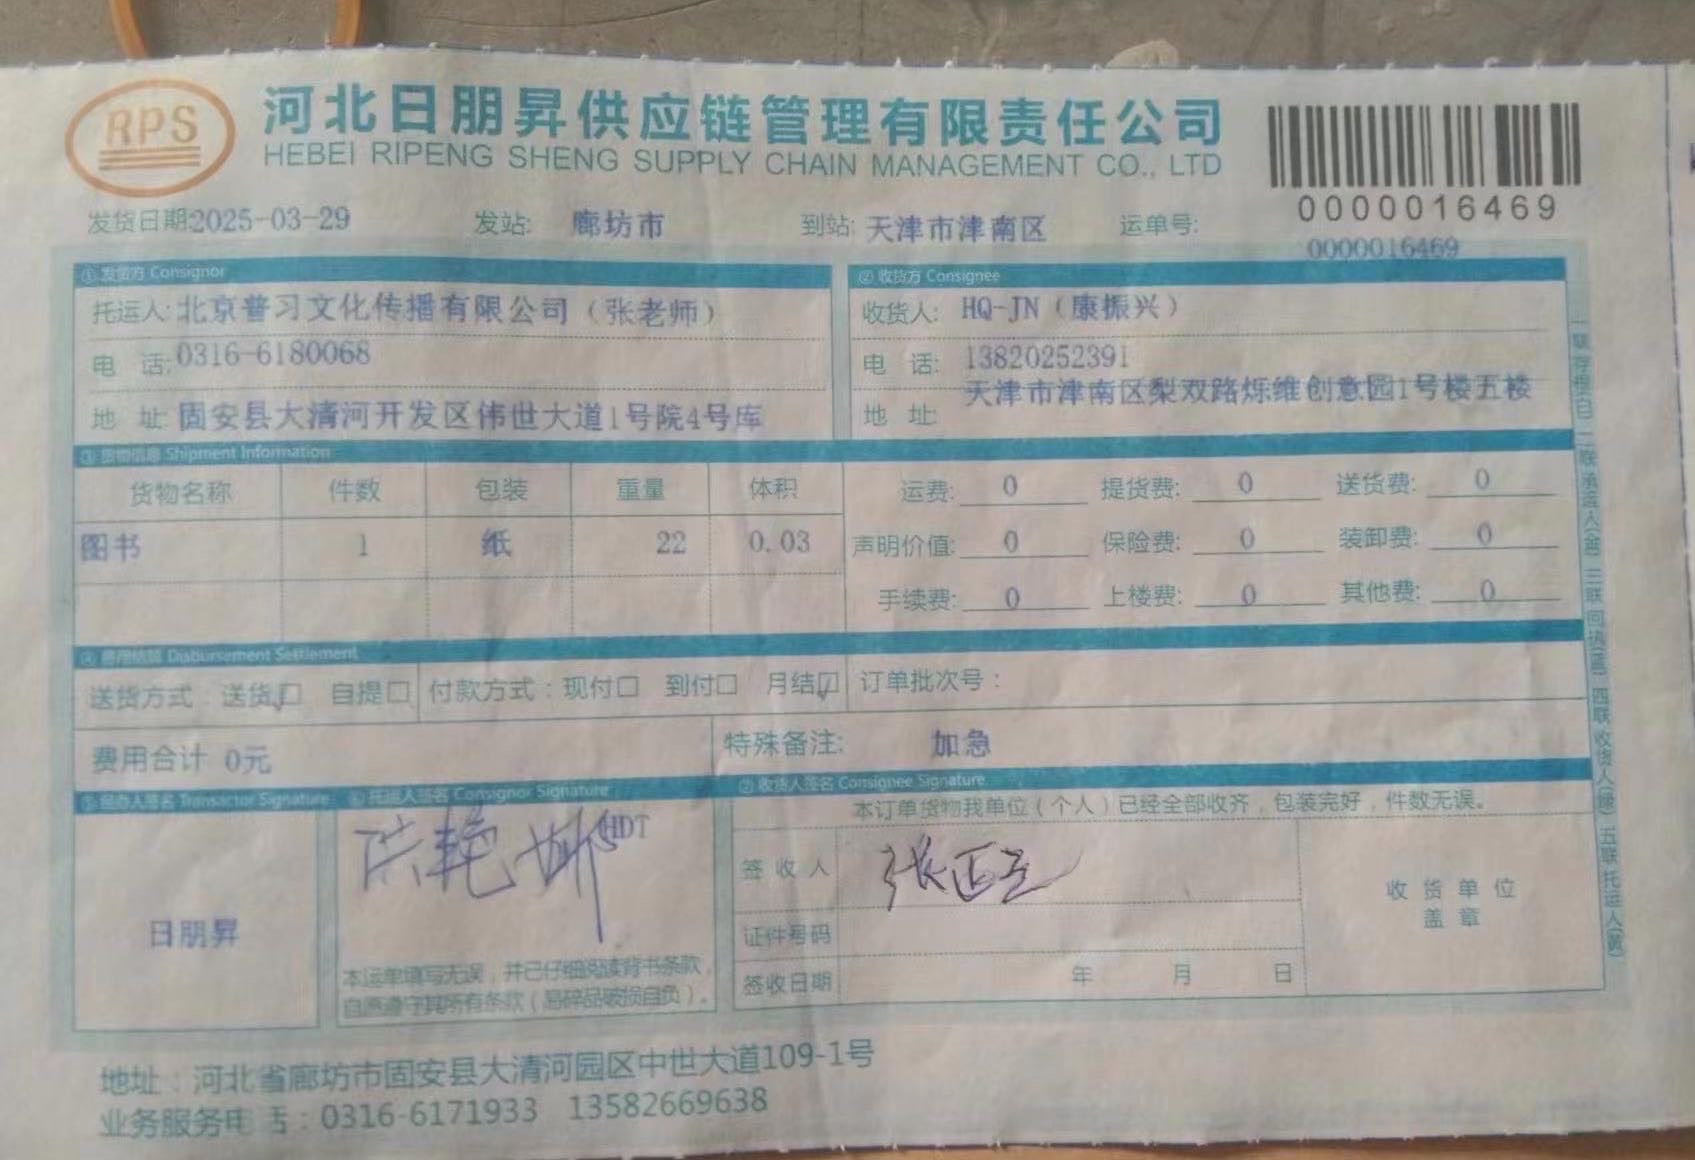 RPS
河北日朋昇供应链管理有限责任公司
HEBEI RIPENG SHENG SUPPLY CHAIN MANAGEMENT CO., LTD
0000016469
发货日期:2025-03-29 发站: 廊坊市 到站: 天津市津南区 运单号: 0000016469
①发货方 Consignor ②收货方 Consignee
托运人:北京普习文化传播有限公司（张老师） 收货人: HQ-JN（康振兴）
电 话:0316-6180068 电 话: 13820252391
地 址:固安县大清河开发区伟世大道1号院4号库 地 址: 天津市津南区梨双路烁维创意园1号楼五楼
③货物信息 Shipment Information
货物名称 件数 包装 重量 体积 运费: 0 提货费: 0 送货费: 0
图书 1 纸 22 0.03 声明价值: 0 保险费: 0 装卸费: 0
手续费: 0 上楼费: 0 其他费: 0
④费用结算 Disbursement Settlement
送货方式：送货☑ 自提□ 付款方式：现付□ 到付□ 月结☑ 订单批次号：
费用合计 0元 特殊备注: 加急
⑤经办人签名 Transactor Signature ⑥托运人签名 Consignor Signature ⑦收货人签名 Consignee Signature
本订单货物我单位（个人）已经全部收齐，包装完好，件数无误。
HDT
签收人 张
日朋昇
证件号码
收货单位
盖章
签收日期 年 月 日
本运单填写无误，并已仔细阅读背书条款，
自愿遵守其所有条款（易碎品破损自负）。
地址：河北省廊坊市固安县大清河园区中世大道109-1号
业务服务电话：0316-6171933 13582669638